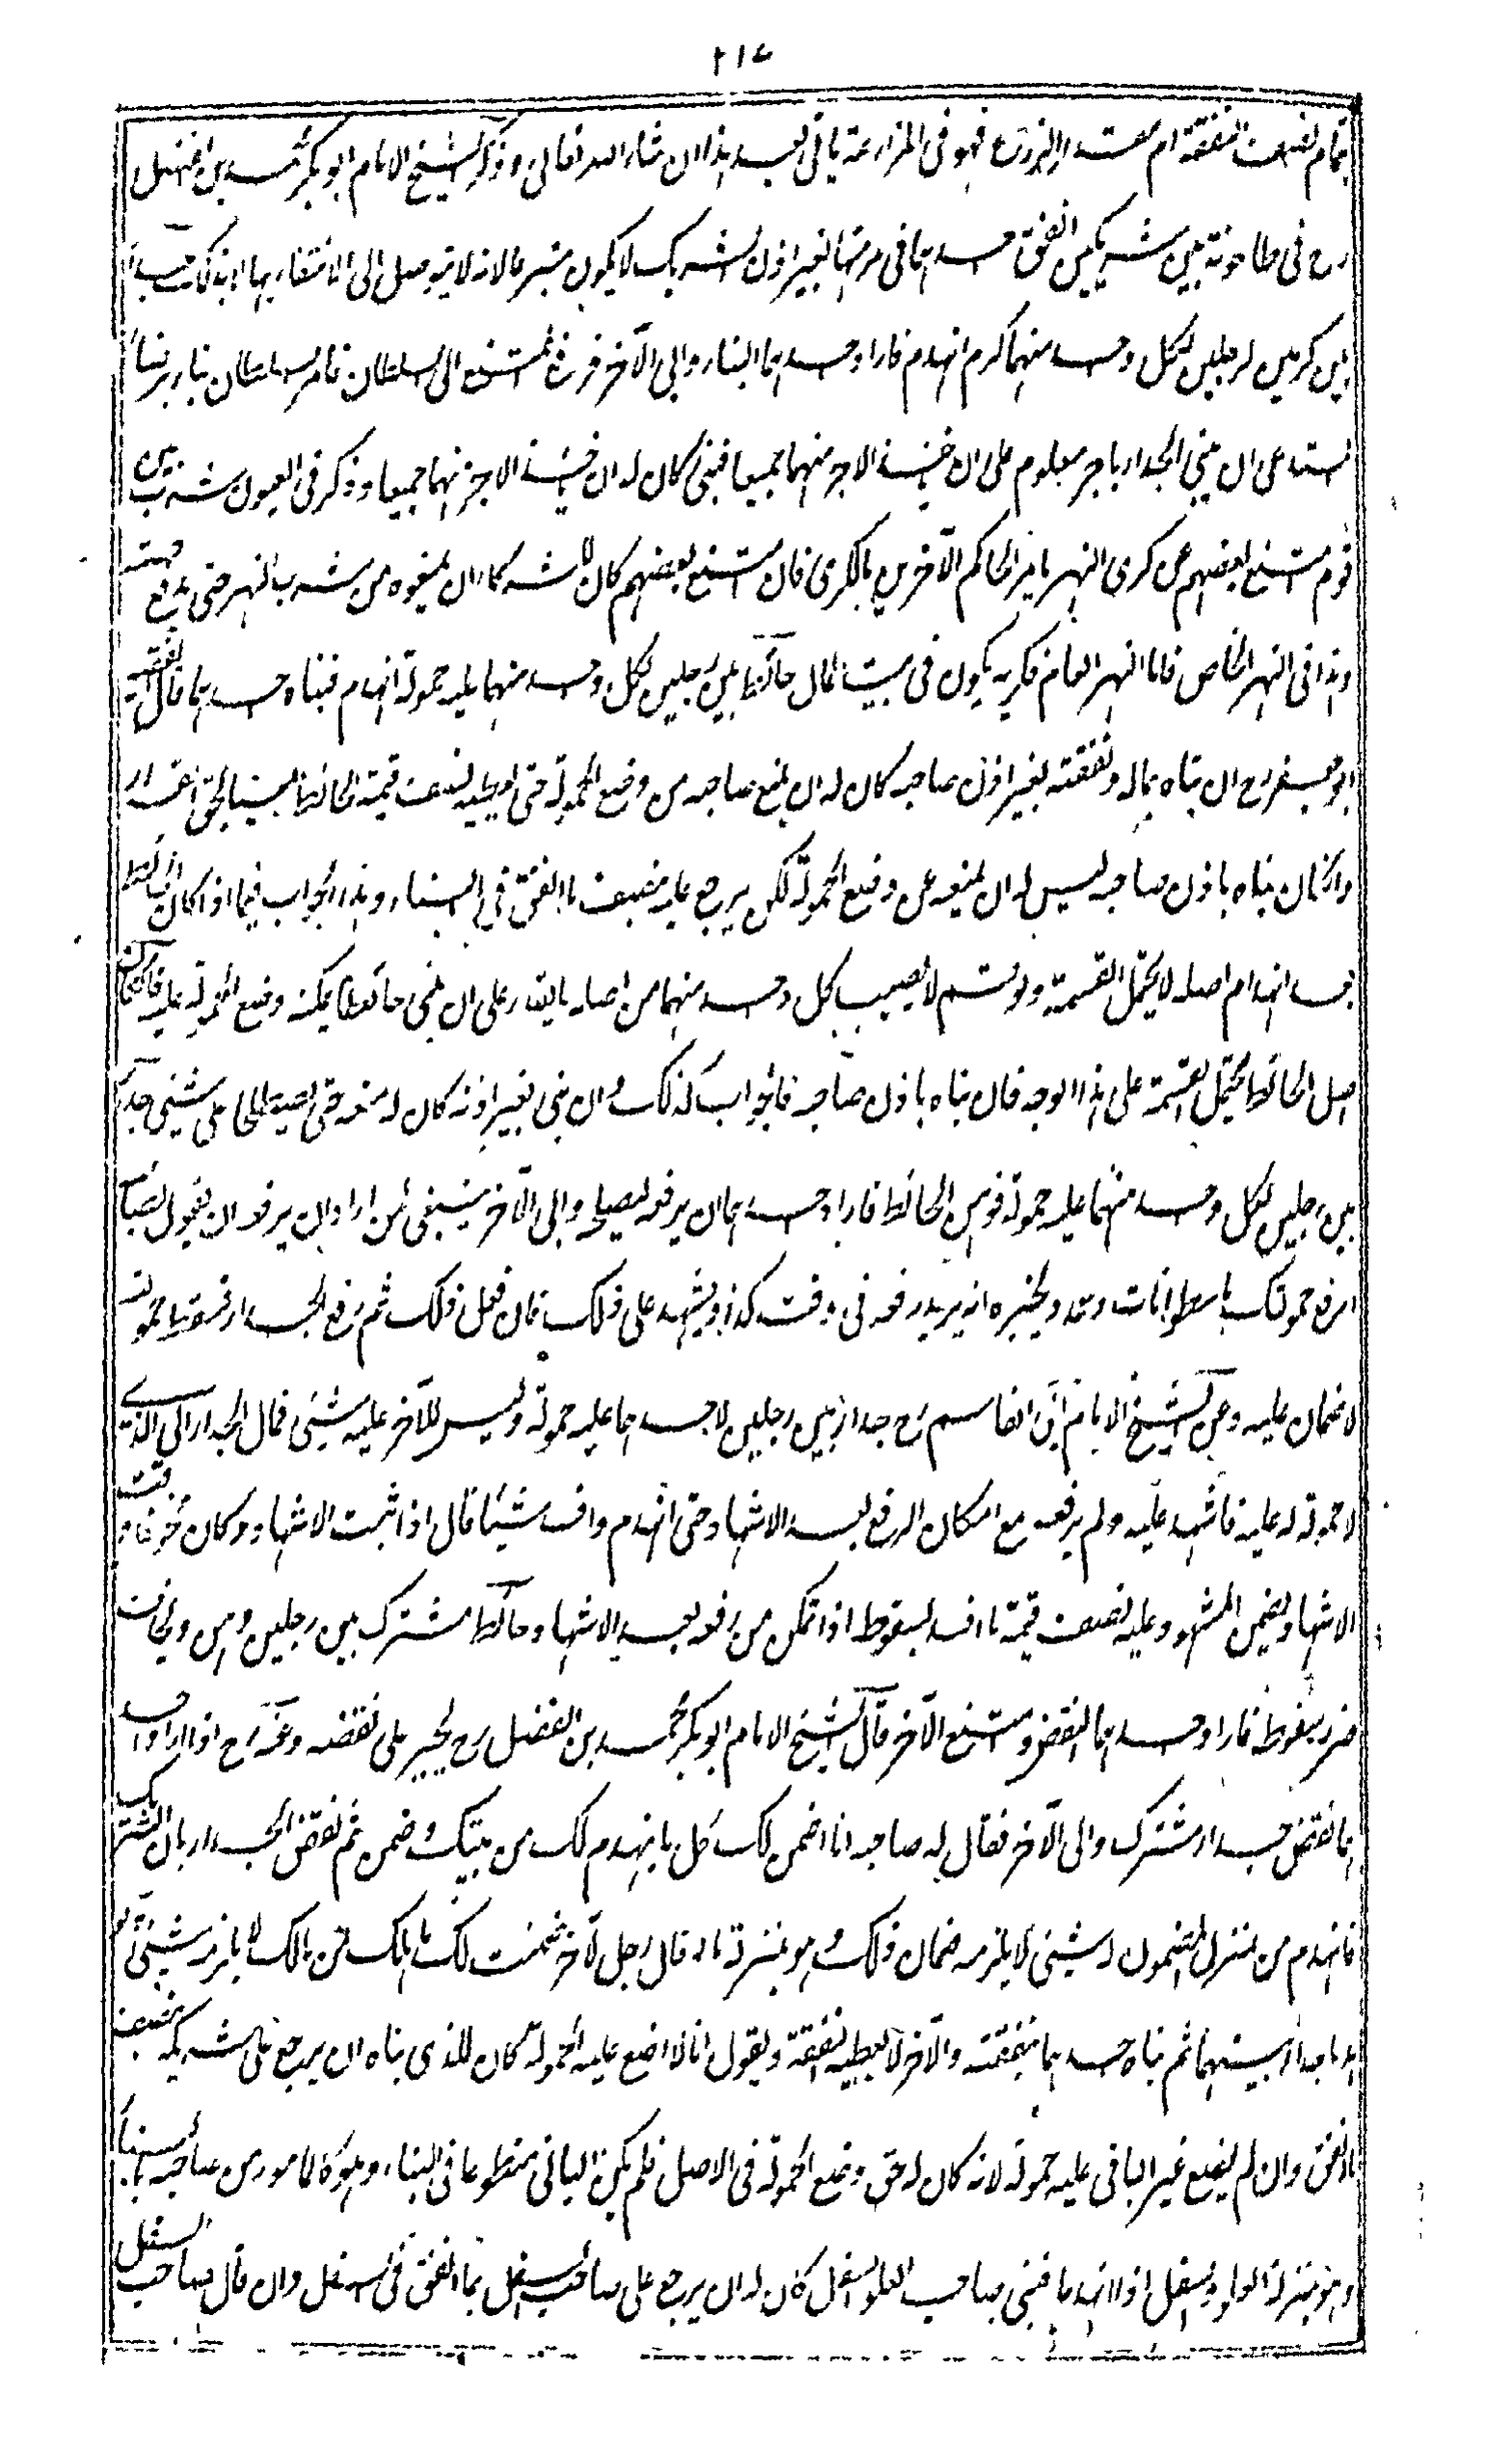 ٢١٧
بتمام نصف النفقة ام بمقدار الزرع فهو فى المزارعة ياتى بعد هذا ان شاء الله تعالى وذكر الشيخ الامام ابو بكر محمد بن الفضل
رح فى طاحونة بين شريكين انفق احدهما فى مرمتها بغير اذن الشريك لا يكون متبرعا لانه لا يتوصل الى الانتفاع بها الا بذلك حائط
بين كرمين لرجلين لكل واحد منهما كرم انهدم فاراد احدهما البناء وابى الآخر فرفع الى السلطان فامر السلطان بناء برضا
المستعدى ان يبنى الجدار باجر معلوم على ان ياخذ الاجر منهما جميعا فبنى كان له ان ياخذ الاجر منهما جميعا وذكر فى العيون شرب بين
قوم امتنع بعضهم عن كرى النهر يامر الحاكم الآخرين بالكرى فان امتنع بعضهم كان للشركاء ان يمنعوه من شرب النهر حتى يدفع حصته
وهذا فى النهر الخاص فاما النهر العام فكريه يكون فى بيت المال حائط بين رجلين لكل واحد منهما عليه حمولة انهدم فبناه احدهما قال الفقيه
ابو جعفر رح ان بناه بماله ونفقته بغير اذن صاحبه كان له ان يمنع صاحبه من وضع الحمولة حتى يعطيه نصف قيمة الحائط مبنيا بحق القرار
وان كان بناه باذن صاحبه ليس له ان يمنعه عن وضع الحمولة لكن يرجع عليه بنصف ما انفق فى البناء وهذا الجواب فيما اذا كان الحائط
بعد انهدام اصله لا يحتمل القسمة ولو قسم لا يصيب كل واحد منهما من اصله ما يقدر على ان يبنى حائطا يمكنه وضع الحمولة عليه فان كان
اصل الحائط يحتمل القسمة على هذا الوجه فان بناه باذن صاحبه فالجواب كذلك وان بنى بغير اذنه كان له منعه حتى يصطلحا على شىء جدار
بين رجلين لكل واحد منهما عليه حمولة فوهن الحائط فاراد احدهما ان يرفعه ليصلحه وابى الآخر ينبغى لمن اراد ان يرفعه ان يقول لصاحبه
ارفع حمولتك باسطوانات وعمد ويخبره انه يريد رفعه فى وقت كذا ويشهد على ذلك فان فعل ذلك ثم رفع الجدار فسقط حمولته
لا ضمان عليه وعن الشيخ الامام ابى القاسم رح جدار بين رجلين لاحدهما عليه حمولة وليس للآخر عليه شىء فمال الجدار الى الذى
لا حمولة له عليه فاشهد عليه ولم يرفعه مع امكان الرفع بعد الاشهاد حتى انهدم وافسد شيئا قال اذا ثبت الاشهاد وكان مخوفا وقت
الاشهاد يضمن المشهود عليه نصف قيمة ما افسد بسقوطه اذا تمكن من رفعه بعد الاشهاد حائط مشترك بين رجلين وهن ويخاف
ضرر سقوطه فاراد احدهما النقض وامتنع الآخر قال الشيخ الامام ابو بكر محمد بن الفضل رح يجبر على نقضه وعنه رح اذا اراد احد
هما نقض جدار مشترك وابى الآخر فقال له صاحبه انا اضمن لك كل ما ينهدم لك من بيتك وضمن ثم نقض الجدار باذن الشريك
فانهدم من منزل المضمون له شىء لا يلزمه ضمان ذلك وهو بمنزلة ما لو قال رجل لآخر ضمنت لك ما هلك من مالك لا يلزمه شىء لو
هدما جدارا بينهما ثم بناه احدهما بنفقته والآخر لا يعطيه النفقة ويقول انا لا اضع عليه الحمولة كان للذى بناه ان يرجع على شريكه بنصف
ما انفق وان لم يضع غير البانى عليه حمولة لانه كان له حق وضع الحمولة فى الاصل فلم يكن البانى متطوعا فى البناء وهو كالمامور من صاحبه بالبناء
وهو بمنزلة العلو والسفل اذا انهدما فبنى صاحب العلو السفل كان له ان يرجع على صاحب السفل بما انفق فى السفل وان قال صاحب السفل